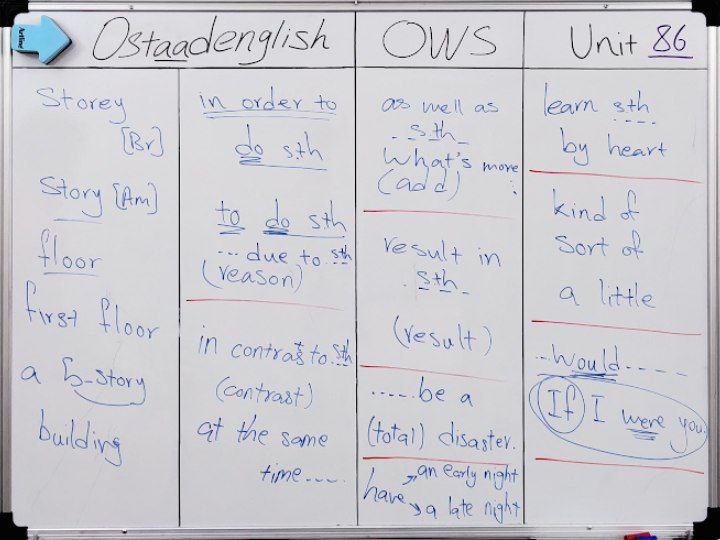 Artline
Ostaadenglish
OWS
Unit 86
Storey
[Br]
Story [Am]
floor
first floor
a 5-story
building
in order to
do sth
to do sth
... due to sth
(reason)
in contrast to sth
(contrast)
at the same
time....
as well as
..sth.
What's more
(add)
result in
.sth.
(result)
.....be a
(total) disaster.
have
an early night
a late night
learn sth
by heart
kind of
sort of
a little
...would....
If I were you.